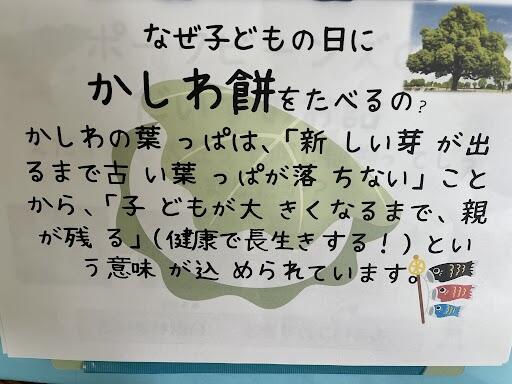 なぜ子どもの日に
かしわ餅をたべるの?
かしわの葉 っぱは、「新 しい芽 が出
るまで古 い葉 っぱが落 ちない」こと
から、「子 どもが大 きくなるまで、親
が残 る」(健康で長生きする!)とい
う意味 が込 められています。